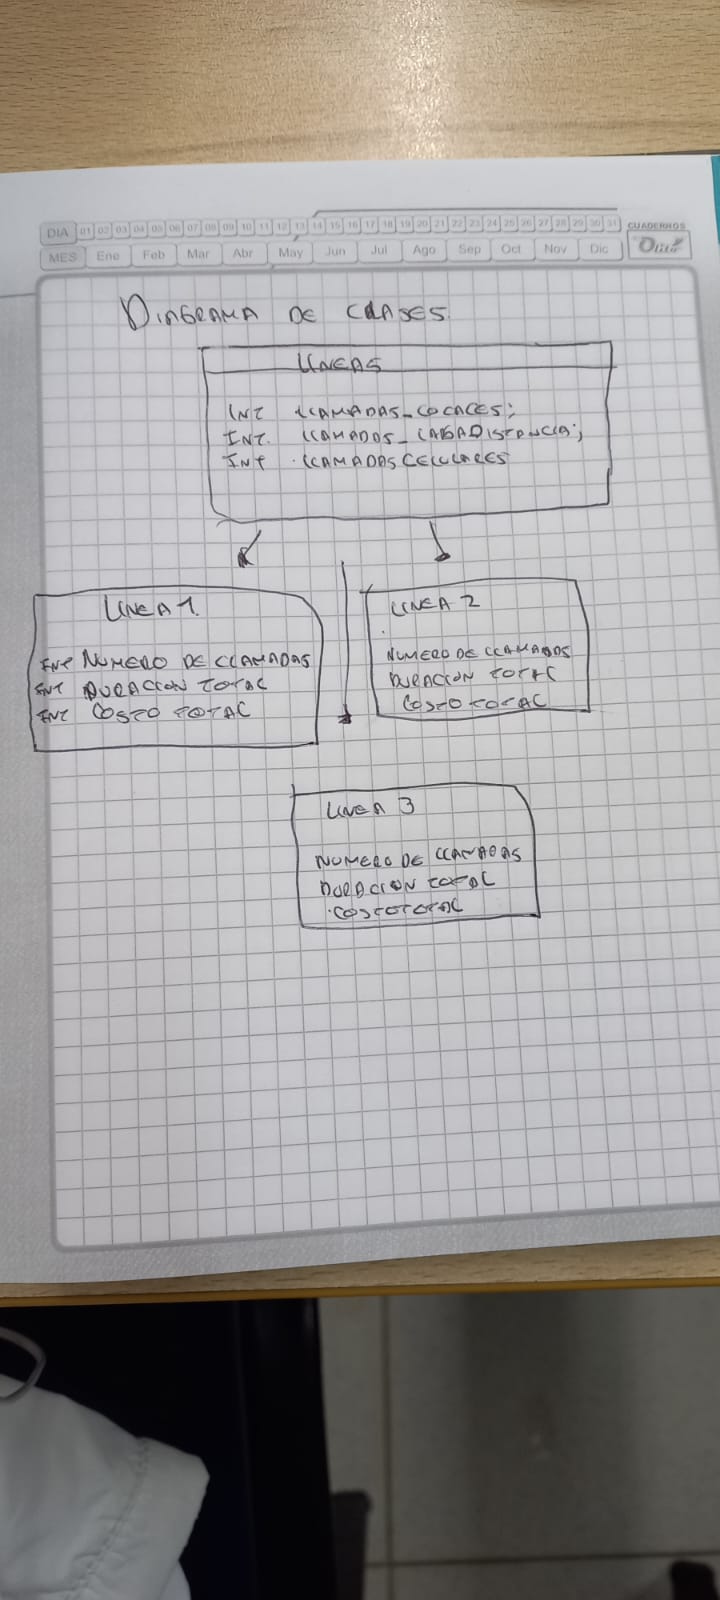 DIA 01 02 03 04 05 06 07 08 09 10 11 12 13 14 15 16 17 18 19 20 21 22 23 24 25 26 27 28 29 30 31
CUADERNOS
MES Ene Feb Mar Abr May Jun Jul Ago Sep Oct Nov Dic
DIAGRAMA DE CLASES
LINEAS
INT LLAMADAS_LOCALES;
INT. LLAMADOS_LARGADISTANCIA;
INT .LLAMADASCELULARES
LINEA 1.
INT NUMERO DE LLAMADAS
INT DURACCION TOTAL
INT COSTO TOTAL
LINEA 2
NUMERO DE LLAMADOS
DURACCION TOTAL
COSTO TOTAL
LINEA 3
NUMERO DE LLAMADAS
DURACION TOTAL
.COSTOTOTAL